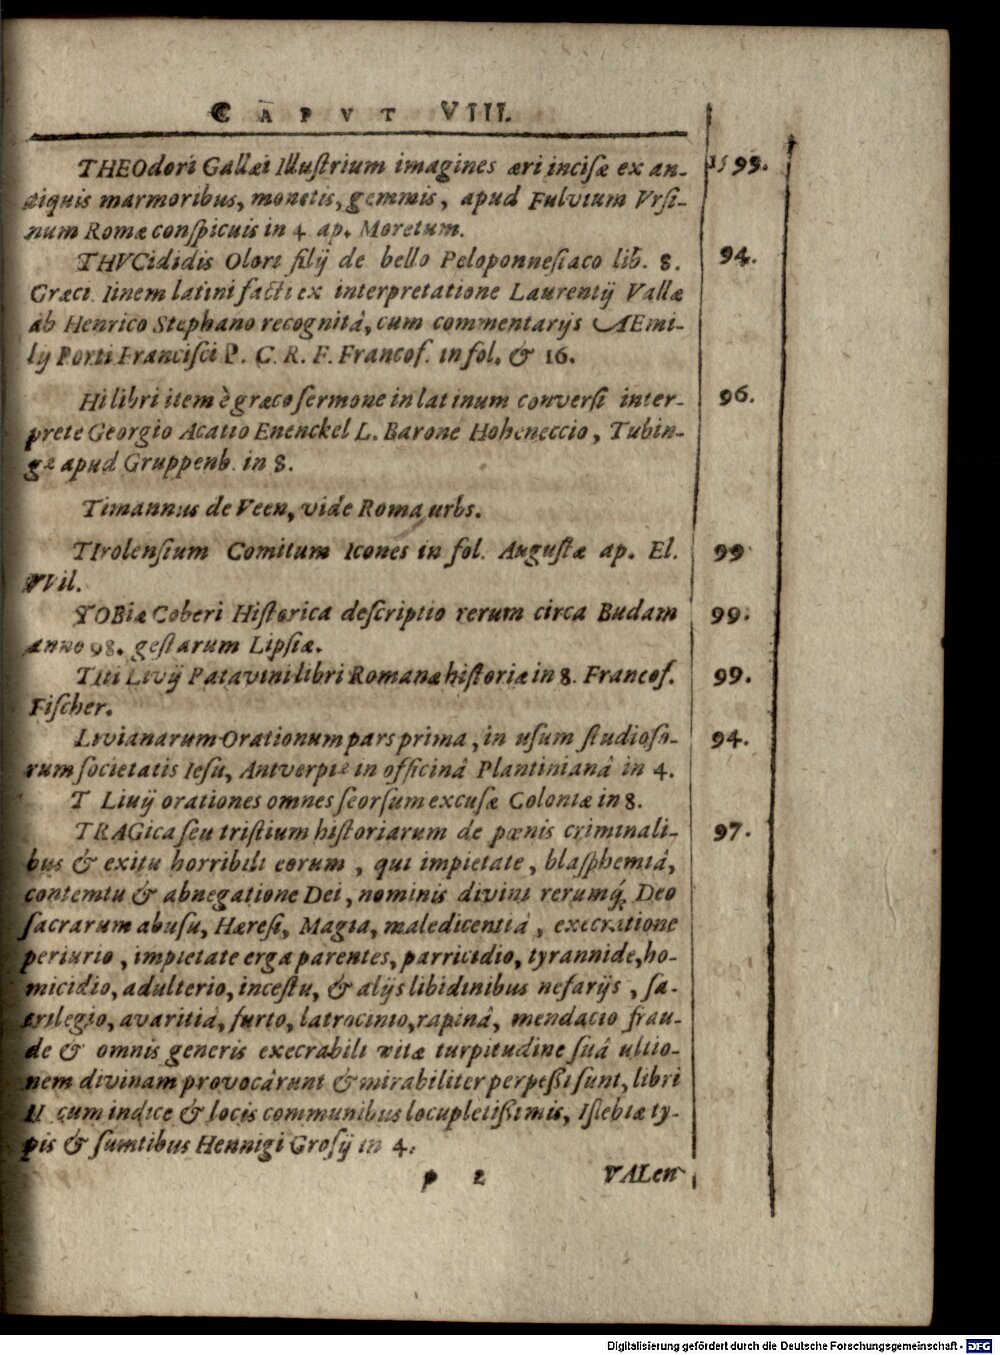 CAPVT VIII.
THEOdori Gallæi Illuſtrium imagines æri inciſæ ex an- 1599.
tiquis marmoribus, monetis, gemmis, apud Fulvium Vrſi-
num Romæ conſpicuis in 4 ap. Moretum.
THVCididis Olori filij de bello Peloponneſiaco lib. 8. 94.
Græci. Iinem latini facti ex interpretatione Laurentij Vallæ
ab Henrico Stephano recognitâ, cum commentarijs AEmi-
lij Porti Franciſci P. C. R. F. Francof. in fol. & 16.
Hi libri item è græco ſermone in latinum converſi inter- 96.
prete Georgio Acatio Enenckel L. Barone Hoheneccio, Tubin-
gæ apud Gruppenb. in 8.
Timannus de Veen, vide Roma urbs.
TIrolenſium Comitum Icones in fol. Auguſtæ ap. El. 99
VVil.
TOBiæ Coberi Hiſtorica deſcriptio rerum circa Budam 99.
anno 98. geſtarum Lipſiæ.
Titi Livij Patavini libri Romanæ hiſtoriæ in 8. Francof. 99.
Fiſcher.
Livianarum Orationum pars prima, in uſum ſtudioſo- 94.
rum ſocietatis Ieſu, Antverpiæ in officinâ Plantinianâ in 4.
T Liuij orationes omnes ſeorſum excuſæ Coloniæ in 8.
TRAGica ſeu triſtium hiſtoriarum de pœnis criminali- 97.
bus & exitu horribili eorum, qui impietate, blaſphemiâ,
contemtu & abnegatione Dei, nominis divini rerumq́; Deo
ſacrarum abuſu, Hæreſi, Magia, maledicentiâ, execratione
periurio, impietate erga parentes, parricidio, tyrannide, ho-
micidio, adulterio, inceſtu, & alijs libidinibus nefarijs, ſa-
crilegio, avaritiâ, furto, latrocinio, rapinâ, mendacio frau-
de & omnis generis execrabili vitæ turpitudine ſuâ ultio-
nem divinam provocârunt & mirabiliter perpeßi ſunt, libri
II cum indice & locis communibus locupletißimis, Iſlebiæ ty-
pis & ſumtibus Hennigi Groſij in 4.
p 2 VALen-
Digitalisierung gefördert durch die Deutsche Forschungsgemeinschaft - DFG